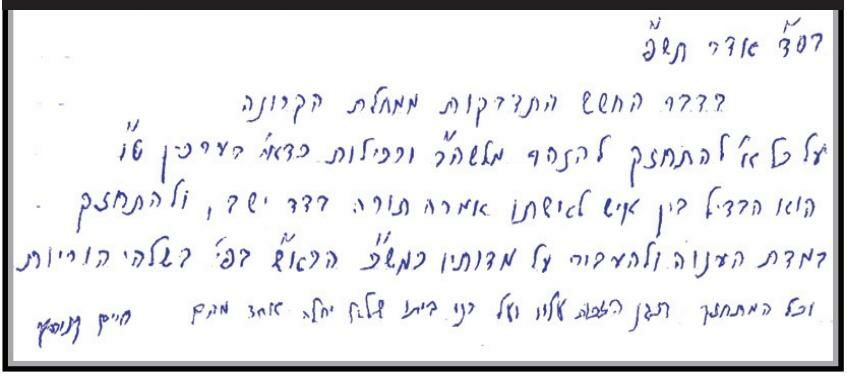 בס״ד אדר תש״פ
בדבר החשש התדבקות ממחלת הקרונה
על כל א׳ להתחזק להזהר מלשה״ר ורכילות כדא׳ בערכין ט״ו
הוא הבדיל בין איש לאישתו אמרה תורה בדד ישב, ולהתחזק
במדת הענוה ולהעביר על מדותיו כמש״כ הרא״ש בפי׳ בשלהי הוריות
וכל המתחזק תגן הזכות עליו ועל בני ביתו שלא יחלה אחד מהם חיים קניבסקי